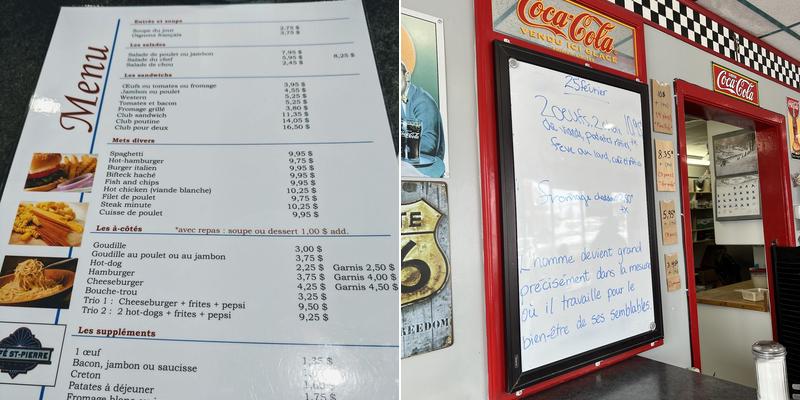 Menu
Entrés et soups
Soupe du jour 2,75 $
Oignons français 3,75 $
Les salades
Salade de poulet ou jambon 7,95 $ 8,25 $
Salade du chef 5,95 $
Salade de chou 2,45 $
Les sandwichs
Œufs ou tomates ou fromage 3,95 $
Jambon ou poulet 4,55 $
Western 5,25 $
Tomates et bacon 5,25 $
Fromage grillé 3,80 $
Club sandwich 11,35 $
Club poutine 14,05 $
Club pour deux 16,50 $
Mets divers
Spaghetti 9,95 $
Hot-hamburger 9,75 $
Burger italien 9,95 $
Bifteck haché 9,95 $
Fish and chips 9,95 $
Hot chicken (viande blanche) 10,25 $
Filet de poulet 9,75 $
Steak minute 10,25 $
Cuisse de poulet 9,95 $
Les à-côtés *avec repas : soupe ou dessert 1,00 $ add.
Goudille 3,00 $
Goudille au poulet ou au jambon 3,75 $
Hot-dog 2,25 $ Garnis 2,50 $
Hamburger 3,75 $ Garnis 4,00 $
Cheeseburger 4,25 $ Garnis 4,50 $
Bouche-trou 3,25 $
Trio 1 : Cheeseburger + frites + pepsi 9,50 $
Trio 2 : 2 hot-dogs + frites + pepsi 9,25 $
Les suppléments
1 œuf 1,35 $
Bacon, jambon ou saucisse
Creton
Patates à déjeuner
Fromage 1,75 $
É ST-PIERRE
Coca-Cola
VENDU ICI GLACÉ
25 février
2 œufs, 2
de viande, patates rôties,
fève au lard, café
Fromage dessus
+tx
L'homme devient grand
précisément dans la mesure
où il travaille pour le
bien-être de ses semblables.
TE
6
FREEDOM
Coca-Cola
8.35
5.95